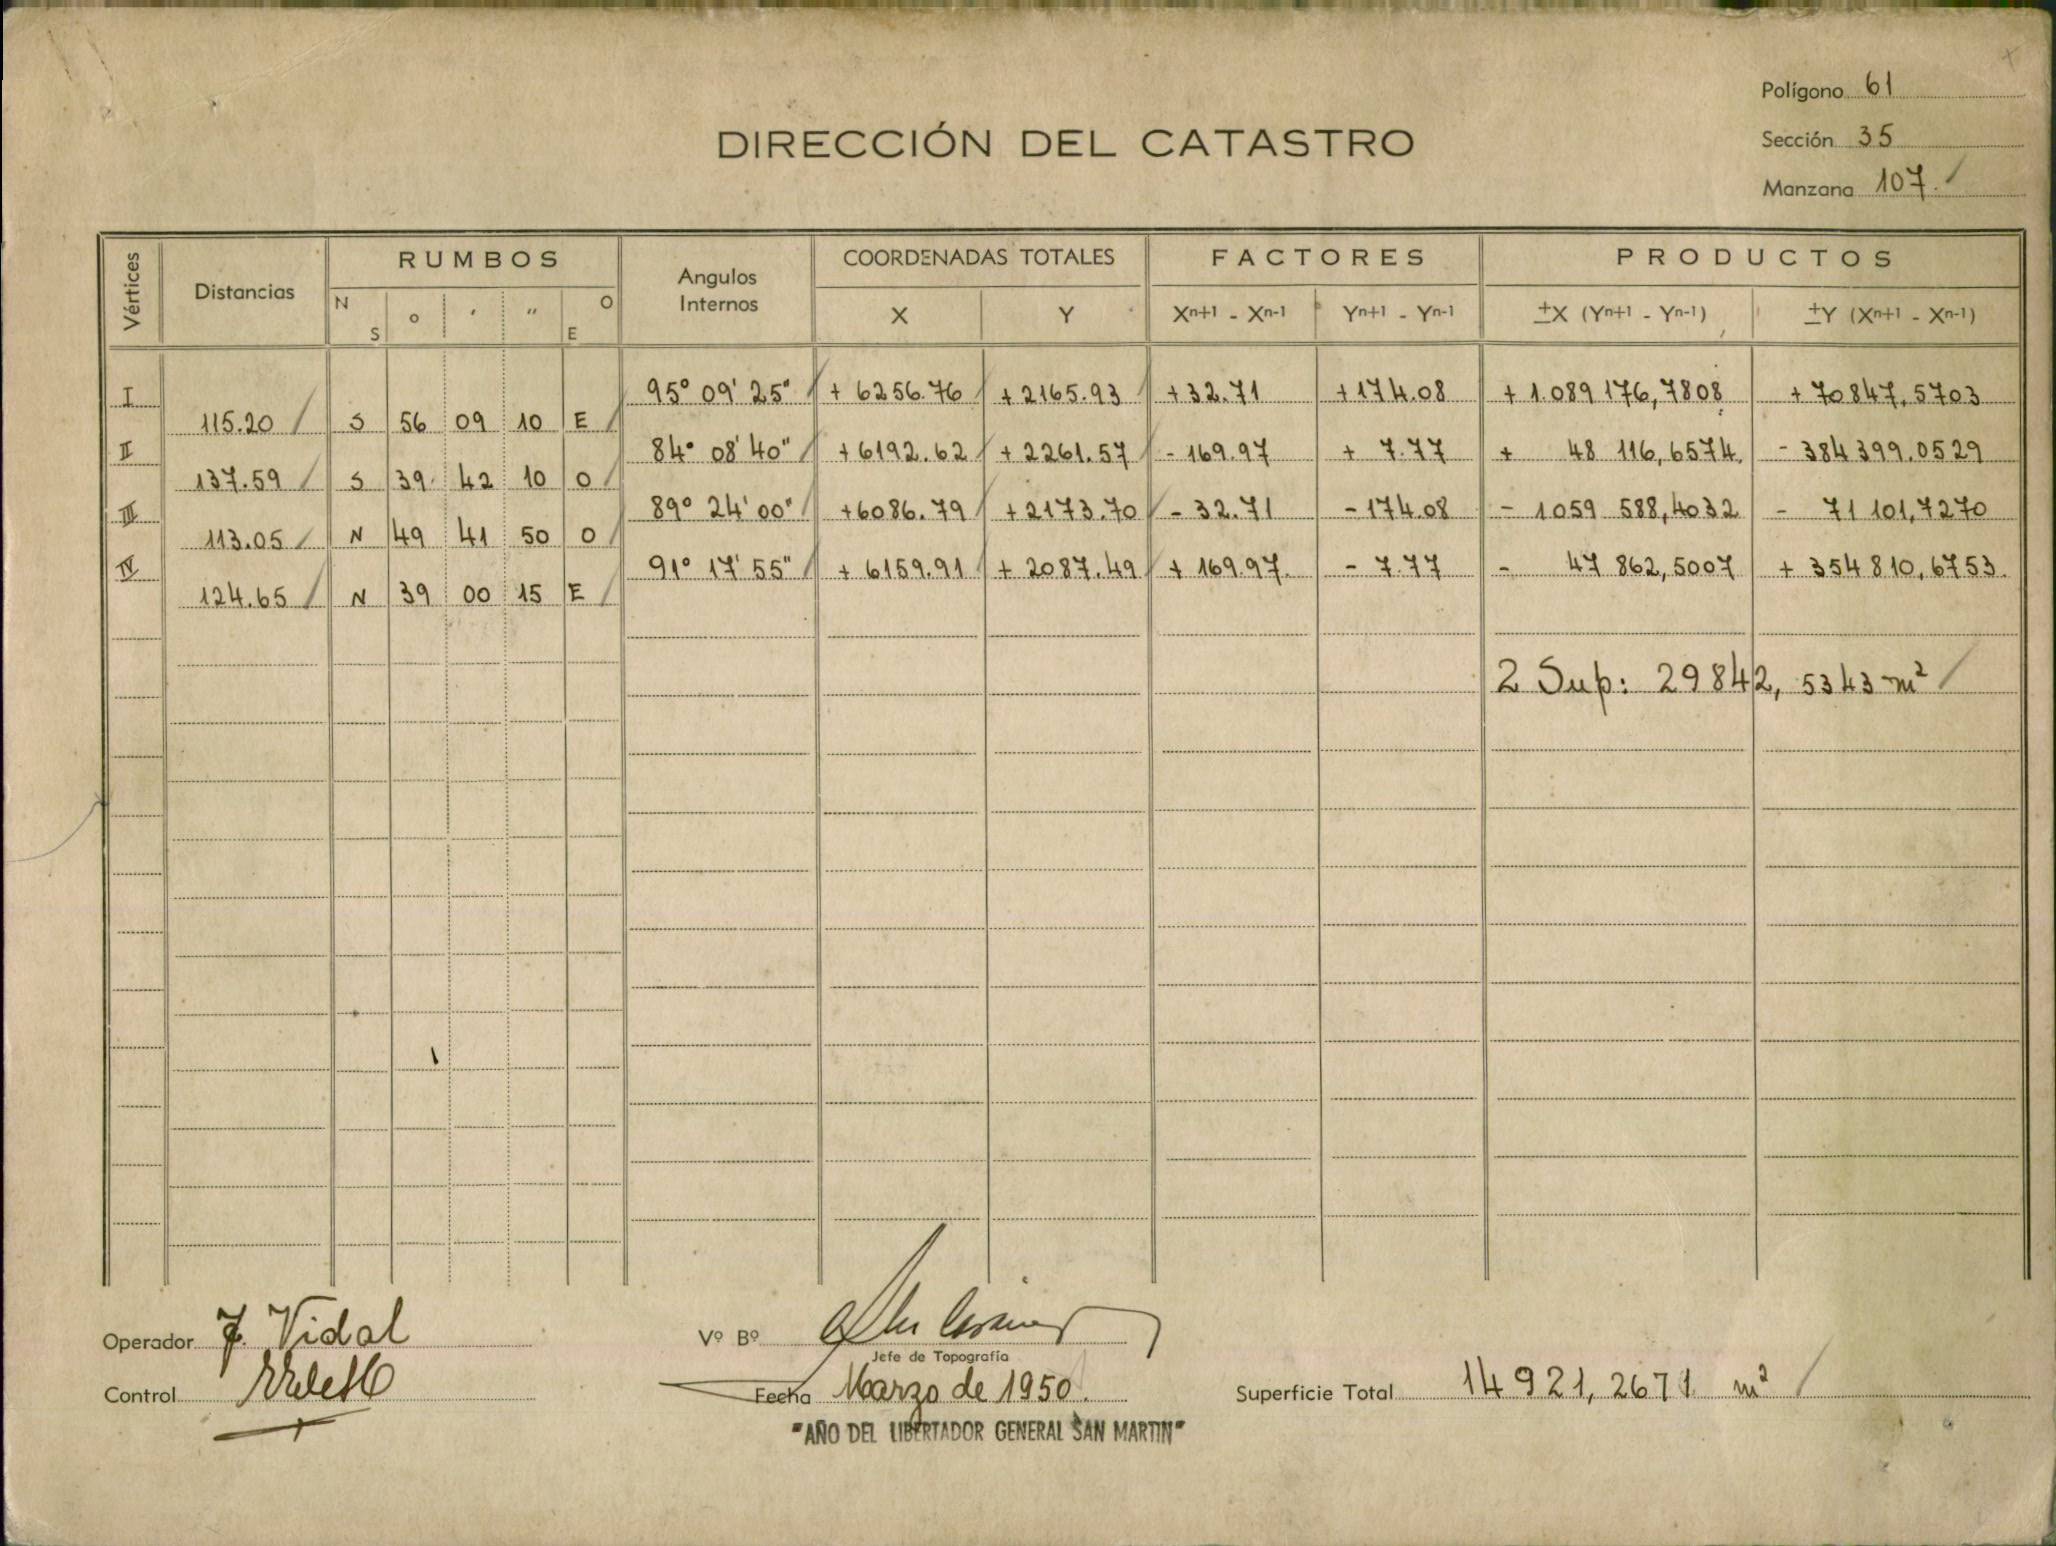 Polígono 61
DIRECCIÓN DEL CATASTRO
Sección 35
Manzana 107.
Vértices Distancias RUMBOS Angulos Internos COORDENADAS TOTALES FACTORES PRODUCTOS
N S ° ' " O E X Y Xⁿ⁺¹ - Xⁿ⁻¹ Yⁿ⁺¹ - Yⁿ⁻¹ ±X (Yⁿ⁺¹ - Yⁿ⁻¹) ±Y (Xⁿ⁺¹ - Xⁿ⁻¹)
I 95° 09' 25" + 6256.76 + 2165.93 + 32.71 + 174.08 + 1.089 176,7808 + 70847,5703
115.20 S 56 09 10 E
II 84° 08' 40" + 6192.62 + 2261.57 - 169.97 + 7.77 + 48 116,6574 - 384 399.0529
137.59 S 39 42 10 O
III 89° 24' 00" + 6086.79 + 2173.70 - 32.71 - 174.08 - 1059 588,4032 - 71 101,7270
113.05 N 49 41 50 O
IV 91° 17' 55" + 6159.91 + 2087.49 + 169.97. - 7.77 - 47 862,5007 + 354 810,6753.
124.65 N 39 00 15 E
2 Sup: 29842, 5343 m²
Operador J. Vidal
Vº Bº
Jefe de Topografía
Control
Fecha Marzo de 1950.
Superficie Total 14 921, 2671 m²
"AÑO DEL LIBERTADOR GENERAL SAN MARTIN"